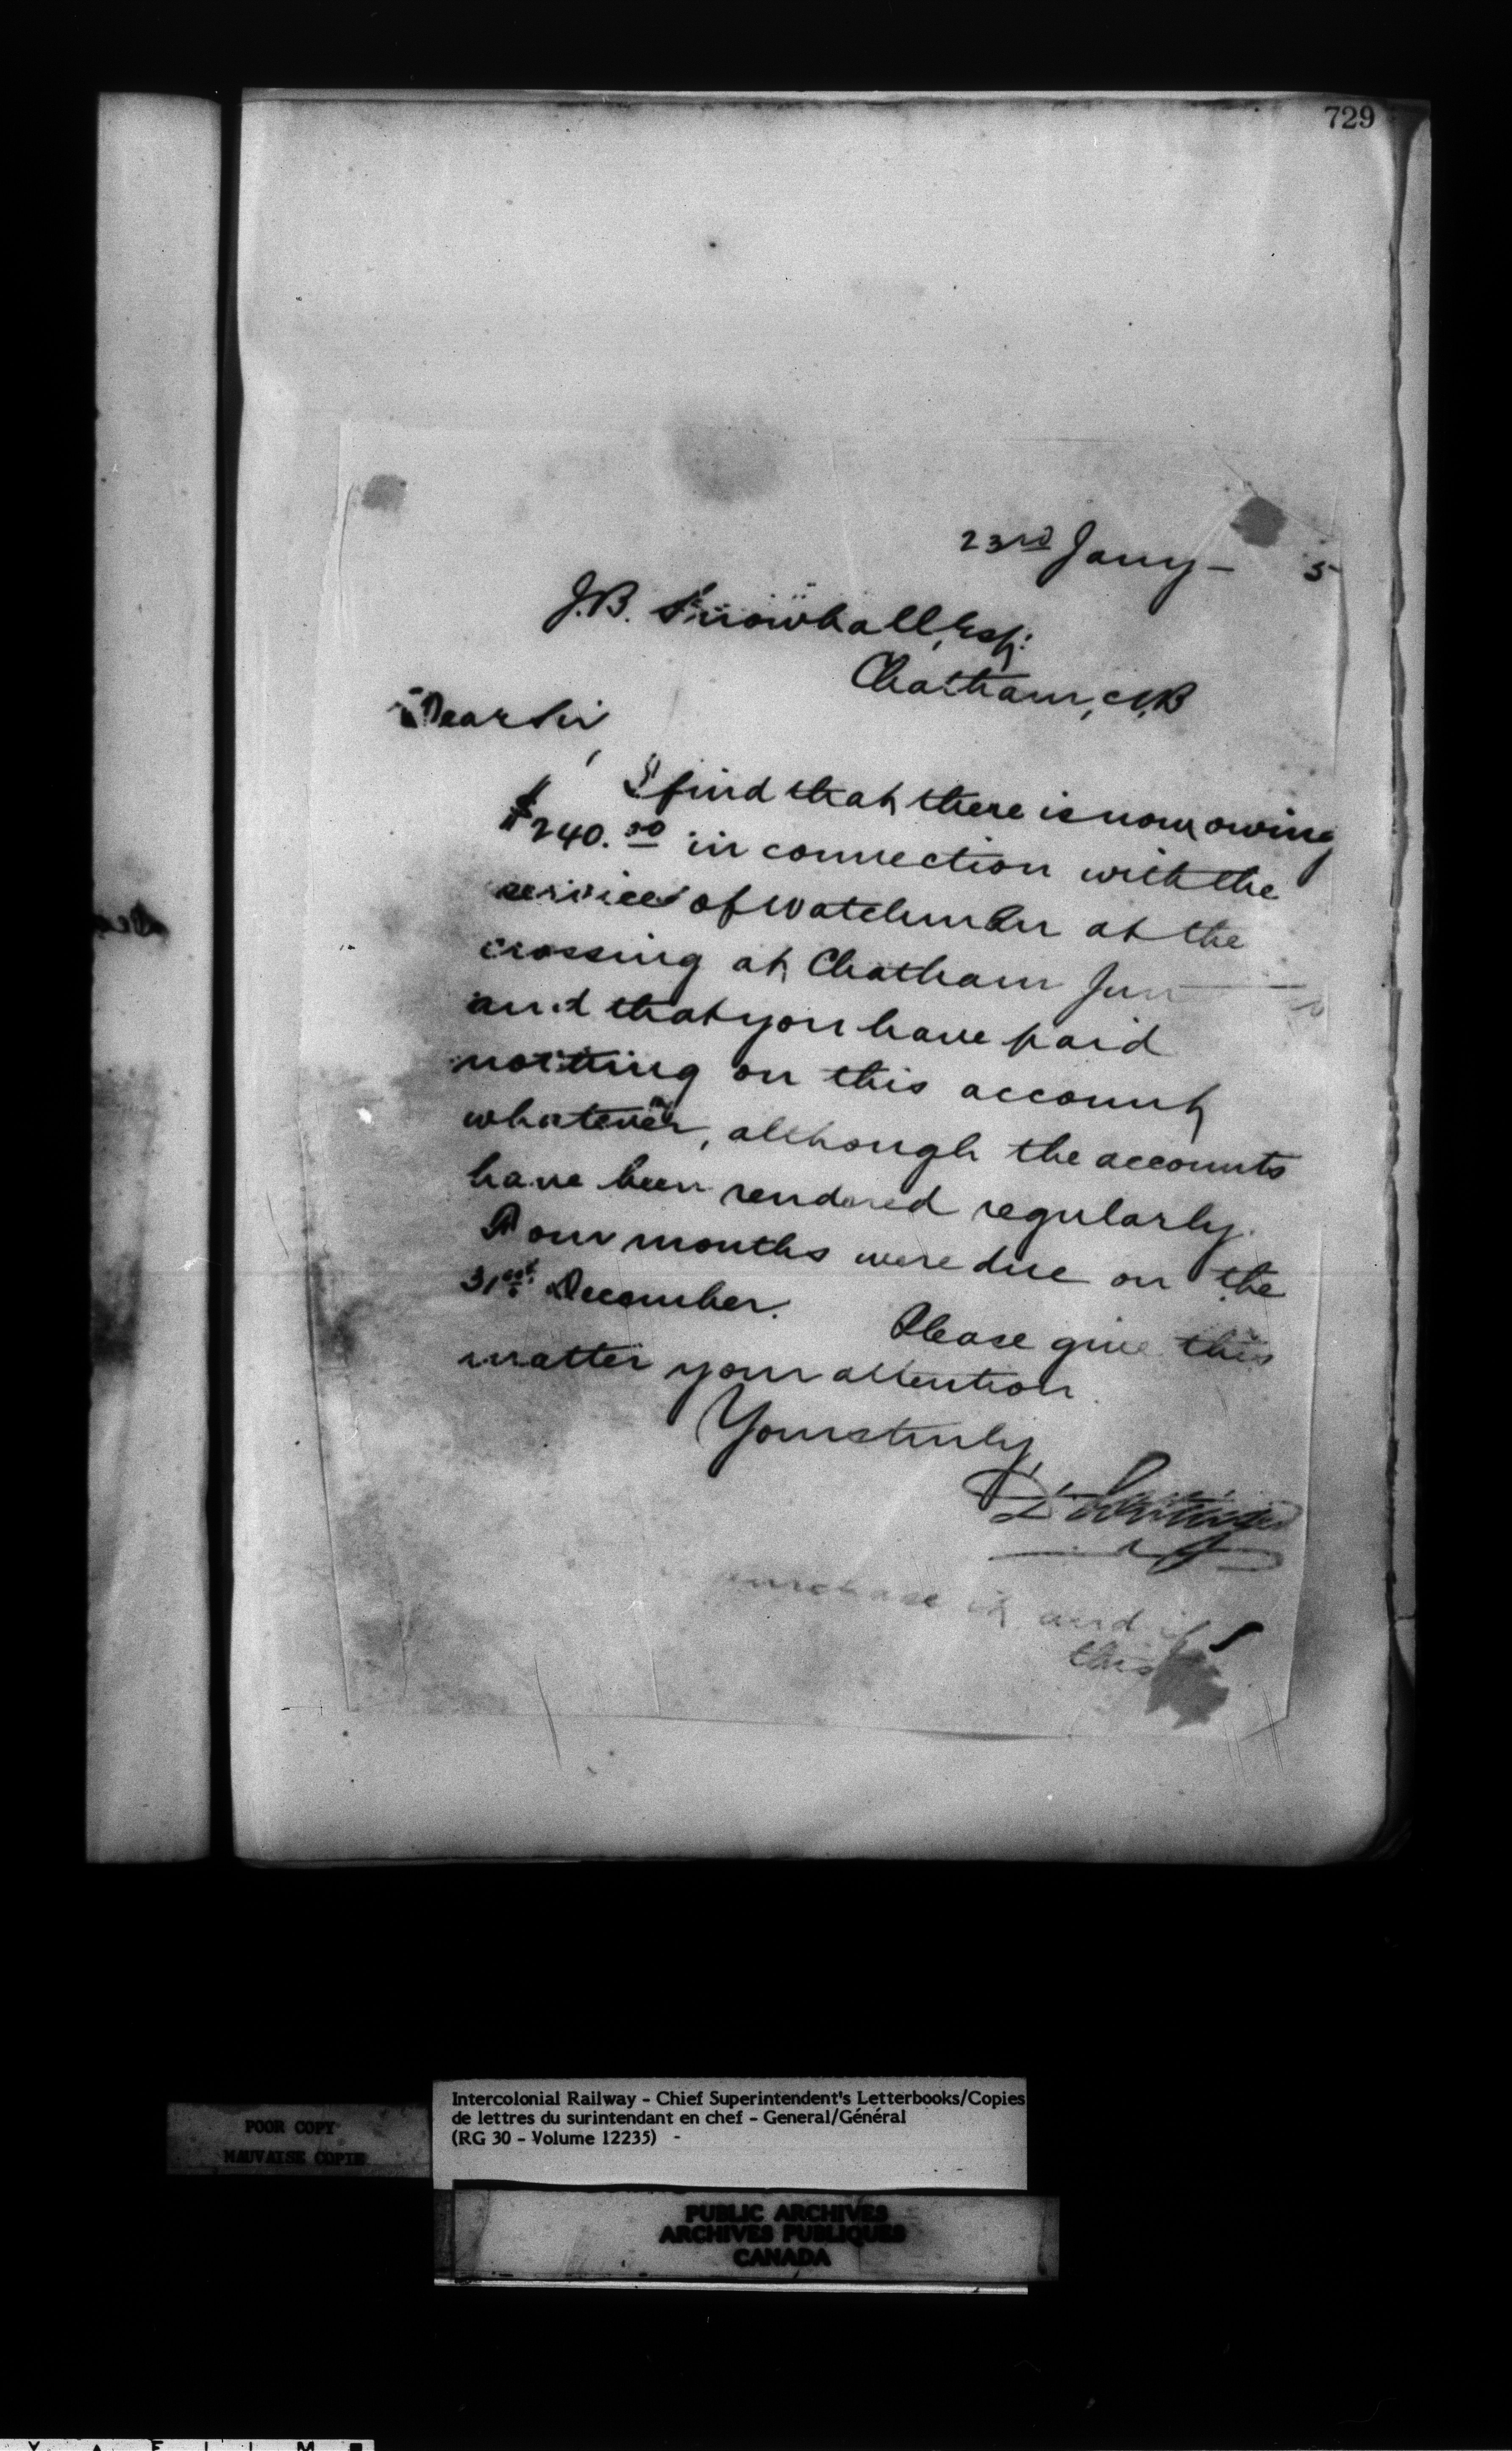 729
23rd Jany - 5
J.B. Snowball, Esq:
Chatham, N.B
Dear Sir,
I find that there is now owing
$240.00 in connection with the
services of watchmen at the
crossing at Chatham Jun
and that you have paid
nothing on this account
whatever, although the accounts
have been rendered regularly.
Four months were due on the
31st December. Please give this
matter your attention.
Yours truly,
D. Pottinger
purchase it and if
this
POOR COPY
MAUVAISE COPIE
Intercolonial Railway - Chief Superintendent's Letterbooks/Copies
de lettres du surintendant en chef - General/Général
(RG 30 - Volume 12235) -
PUBLIC ARCHIVES
ARCHIVES PUBLIQUES
CANADA